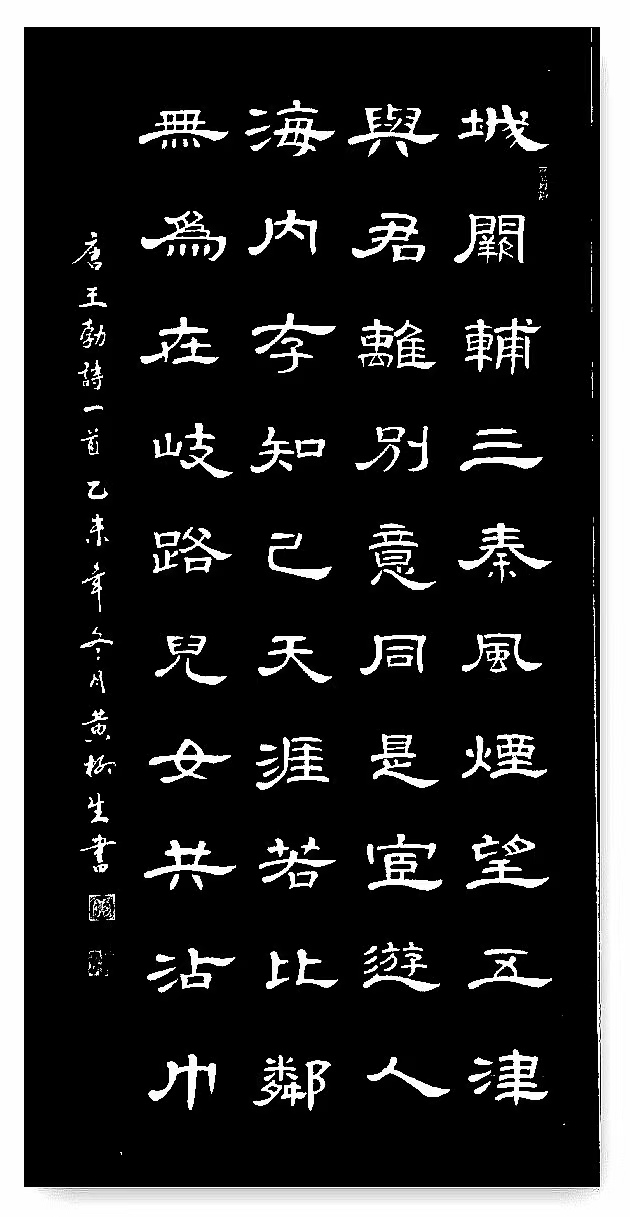 城闕輔三秦風煙望五津
與君離別意同是宦遊人
海内存知己天涯若比鄰
無為在歧路兒女共沾巾
唐王勃詩一首乙未年冬月黄樹生書